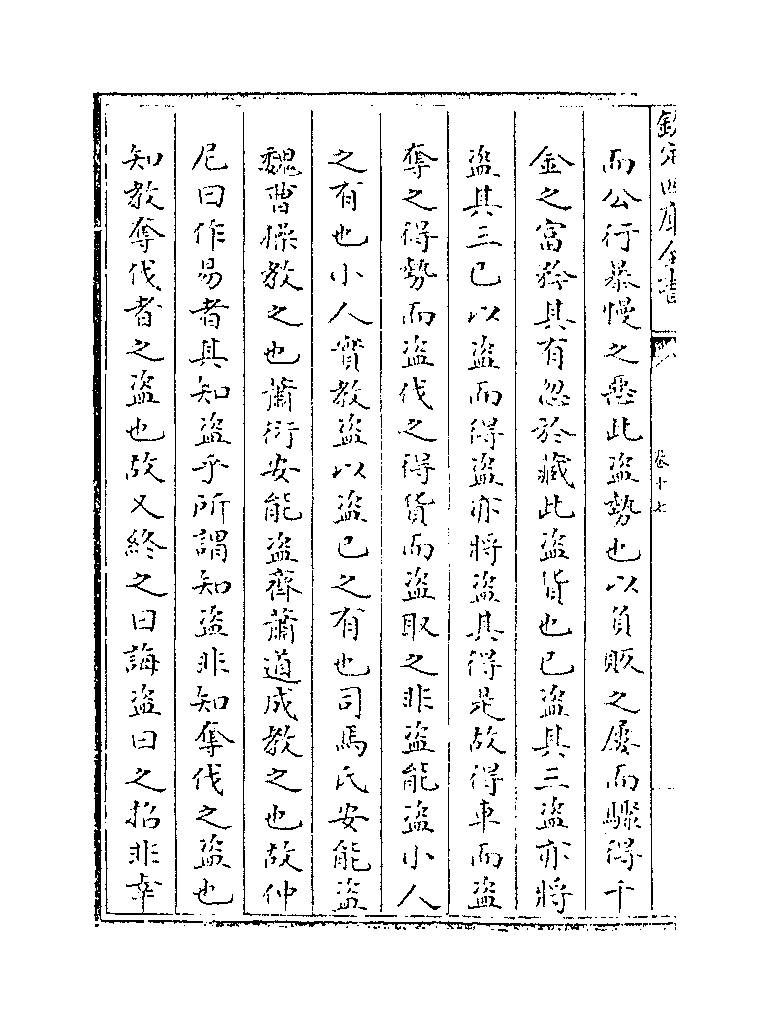 欽定四庫全書
卷十七
而公行暴慢之惡此盜勢也以負販之屨而驟得千
金之富矜其有忽於藏此盜貨也已盜其三盜亦將
盜其三已以盜而得盜亦將盜其得是故得車而盜
奪之得勢而盜伐之得貨而盜取之非盜能盜小人
之有也小人實教盜以盜已之有也司馬氏安能盜
魏曹操教之也蕭衍安能盜齊蕭道成教之也故仲
尼曰作易者其知盜乎所謂知盜非知奪伐之盜也
知教奪伐者之盜也故又終之曰誨盜曰之招非幸